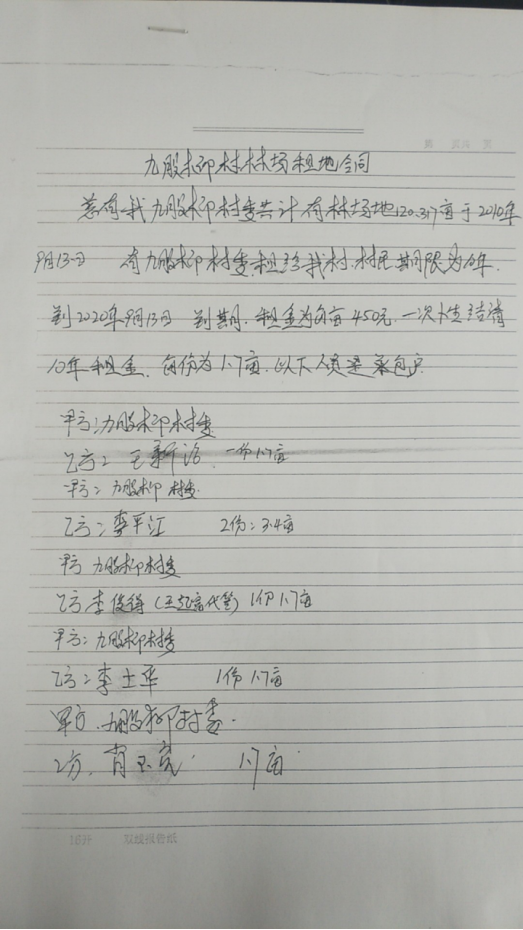 九股柳村林场租地合同
兹有我九股柳村委共计有林场地120.317亩于2010年
9月13日 有九股柳村委租给我村村民期限为10年.
到2020年9月13日 到期.租金为每亩450元.一次性结清
10年租金.每份为1.7亩.以下人员是承包户
甲方:九股柳村委
乙方: 王新治 一份1.7亩
甲方: 九股柳村委
乙方: 李平江 2份:3.4亩
甲方 九股柳村委
乙方 李俊得(王纪富代签) 1份1.7亩
甲方: 九股柳村委
乙方: 李士华 1份1.7亩
甲方.九股柳村委.
乙方. 肖玉亮 1.7亩
16开 双线报告纸